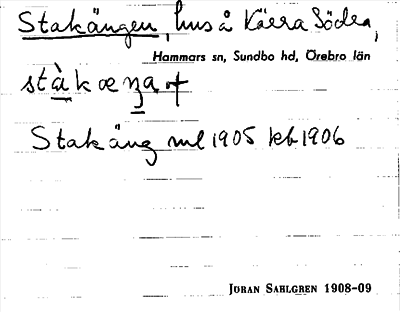 Stakängen, hus å Kärra Södra,
Hammars sn, Sundbo hd, Örebro län
stàkæŋa
Stakäng ml 1905 kb 1906
JÖRAN SAHLGREN 1908-09